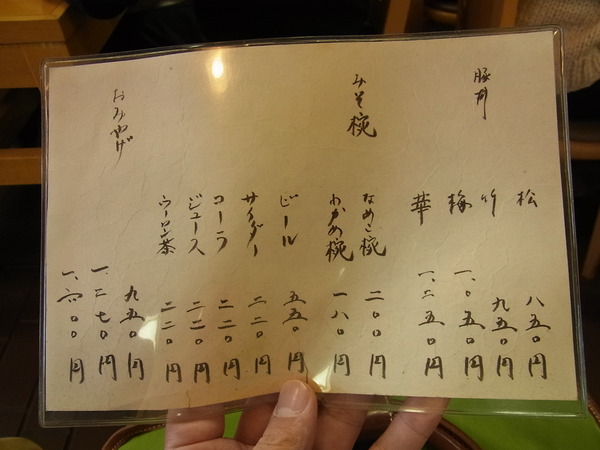 豚丼
松 八五〇円
竹 九五〇円
梅 一、〇五〇円
華 一、二五〇円
みそ椀
なめこ椀 二〇〇円
わかめ椀 一八〇円
ビール 五五〇円
サイダー 二二〇円
コーラ 二二〇円
ジュース 二二〇円
ウーロン茶 二二〇円
おみやげ
九五〇円
円
円